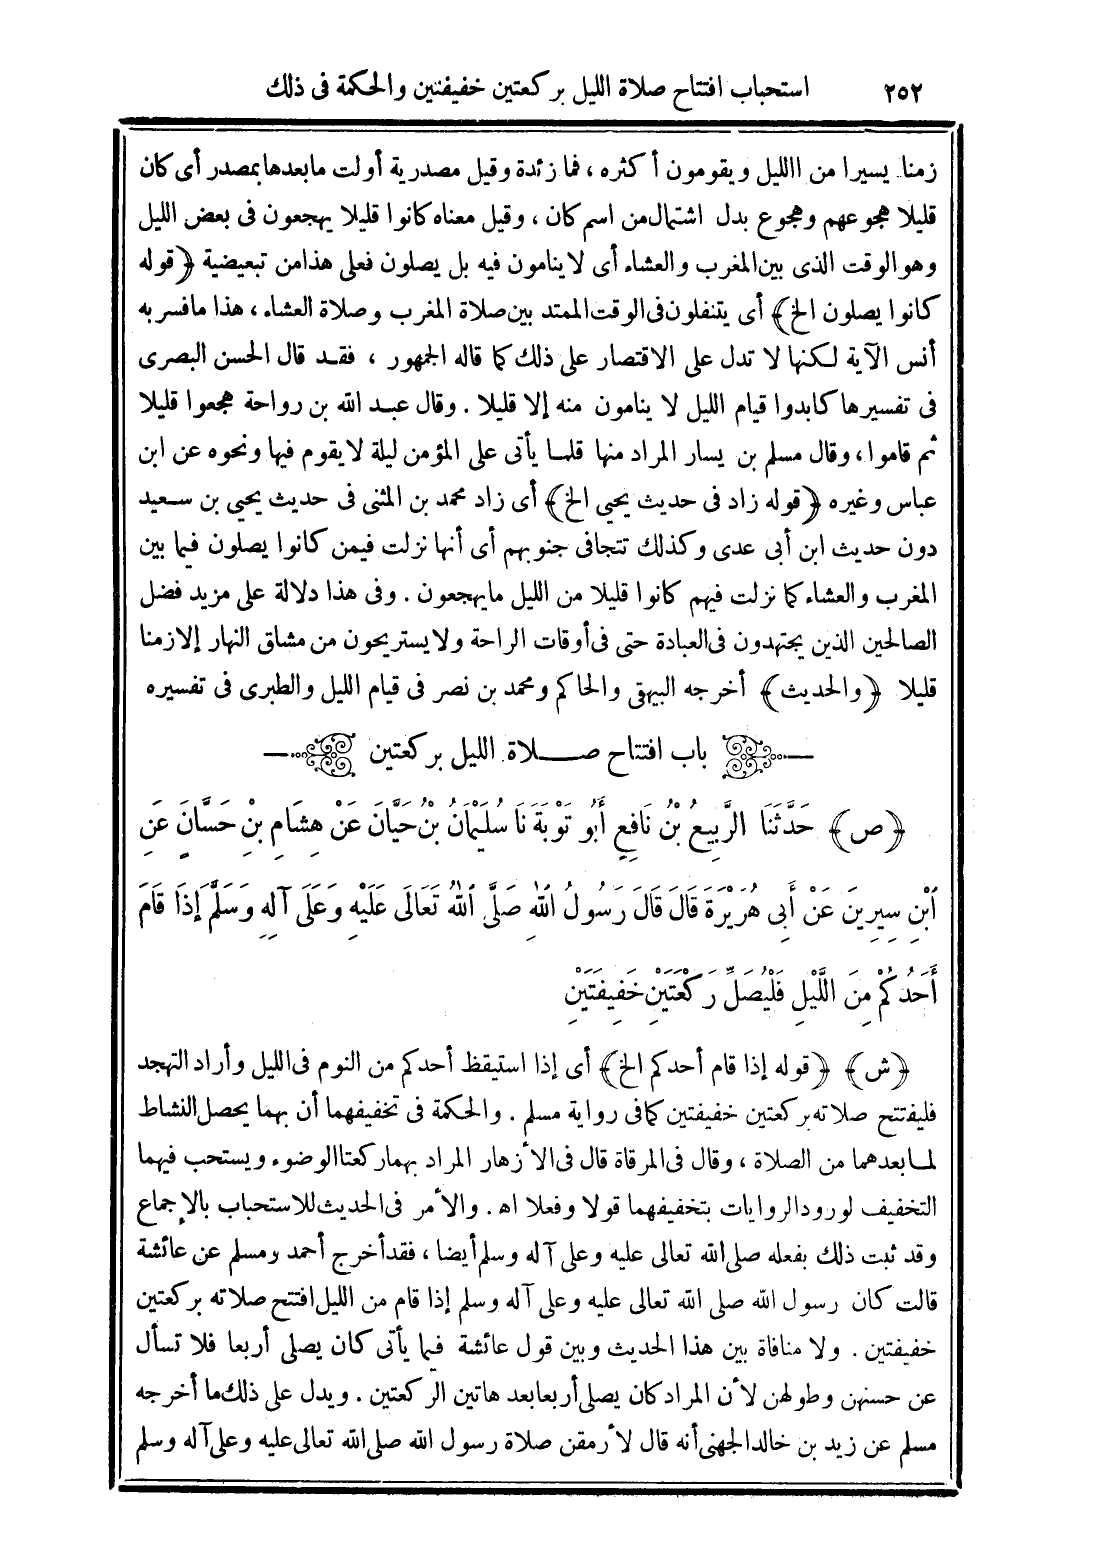 ٢٥٢ استحباب افتتاح صلاة الليل بركعتين خفيفتين والحكمة فى ذلك
زمنا يسيرا من االليل ويقومون أكثره ، فما زئدة وقيل مصدرية أولت مابعدها بمصدر أى كان
قليلا هجوعهم وهجوع بدل اشتمال من اسم كان ، وقيل معناه كانوا قليلا يهجعون فى بعض الليل
وهو الوقت الذى بين المغرب والعشاء أى لاينامون فيه بل يصلون فعلى هذا من تبعيضية ﴿قوله
كانوا يصلون الخ﴾ أى يتنفلون فى الوقت الممتد بين صلاة المغرب وصلاة العشاء ، هذا مافسر به
أنس الآية لكنها لا تدل على الاقتصار على ذلك كما قاله الجمهور ، فقد قال الحسن البصرى
فى تفسيرها كابدوا قيام الليل لا ينامون منه إلا قليلا . وقال عبد الله بن رواحة هجعوا قليلا
ثم قاموا ، وقال مسلم بن يسار المراد منها قلما يأتى على المؤمن ليلة لايقوم فيها ونحوه عن ابن
عباس وغيره ﴿قوله زاد فى حديث يحيى الخ﴾ أى زاد محمد بن المثنى فى حديث يحيى بن سعيد
دون حديث ابن أبى عدى وكذلك تتجافى جنوبهم أى أنها نزلت فيمن كانوا يصلون فيما بين
المغرب والعشاء كما نزلت فيهم كانوا قليلا من الليل مايهجعون . وفى هذا دلالة على مزيد فضل
الصالحين الذين يجتهدون فى العبادة حتى فى أوقات الراحة ولايستريحون من مشاق النهار إلازمنا
قليلا ﴿والحديث﴾ أخرجه البيهقى والحاكم ومحمد بن نصر فى قيام الليل والطبرى فى تفسيره
باب افتتاح صلاة الليل بركعتين
﴿ص﴾ حَدَّثَنَا الرَّبِيعُ بْنُ نَافِعٍ أَبُو تَوْبَةَ نَا سُلَيْمَانُ بْنُ حَيَّانَ عَنْ هِشَامِ بْنِ حَسَّانَ عَنِ
ابْنِ سِيرِينَ عَنْ أَبِى هُرَيْرَةَ قَالَ قَالَ رَسُولُ اللهِ صَلَّى اللهُ تَعَالَى عَلَيْهِ وَعَلَى آلِهِ وَسَلَّمَ إِذَا قَامَ
أَحَدُكُمْ مِنَ اللَّيْلِ فَلْيُصَلِّ رَكْعَتَيْنِ خَفِيفَتَيْنِ
﴿ش﴾ ﴿قوله إذا قام أحدكم الخ﴾ أى إذا استيقظ أحدكم من النوم فى الليل وأراد التهجد
فليفتتح صلاته بركعتين خفيفتين كما فى رواية مسلم . والحكمة فى تخفيفهما أن بهما يحصل النشاط
لما بعدهما من الصلاة ، وقال فى المرقاة قال فى الأزهار المراد بهما ركعتا الوضوء ويستحب فيهما
التخفيف لورود الروايات بتخفيفهما قولا وفعلا اه . والأمر فى الحديث للاستحباب بالإجماع
وقد ثبت ذلك بفعله صلى الله تعالى عليه وعلى آله وسلم أيضا ، فقد أخرج أحمد ومسلم عن عائشة
قالت كان رسول الله صلى الله تعالى عليه وعلى آله وسلم إذا قام من الليل افتتح صلاته بركعتين
خفيفتين . ولا منافاة بين هذا الحديث وبين قول عائشة فيما يأتى كان يصلى أربعا فلا تسأل
عن حسنهن وطولهن لأن المراد كان يصلى أربعا بعد هاتين الركعتين . ويدل على ذلك ما أخرجه
مسلم عن زيد بن خالد الجهنى أنه قال لأرمقن صلاة رسول الله صلى الله تعالى عليه وعلى آله وسلم